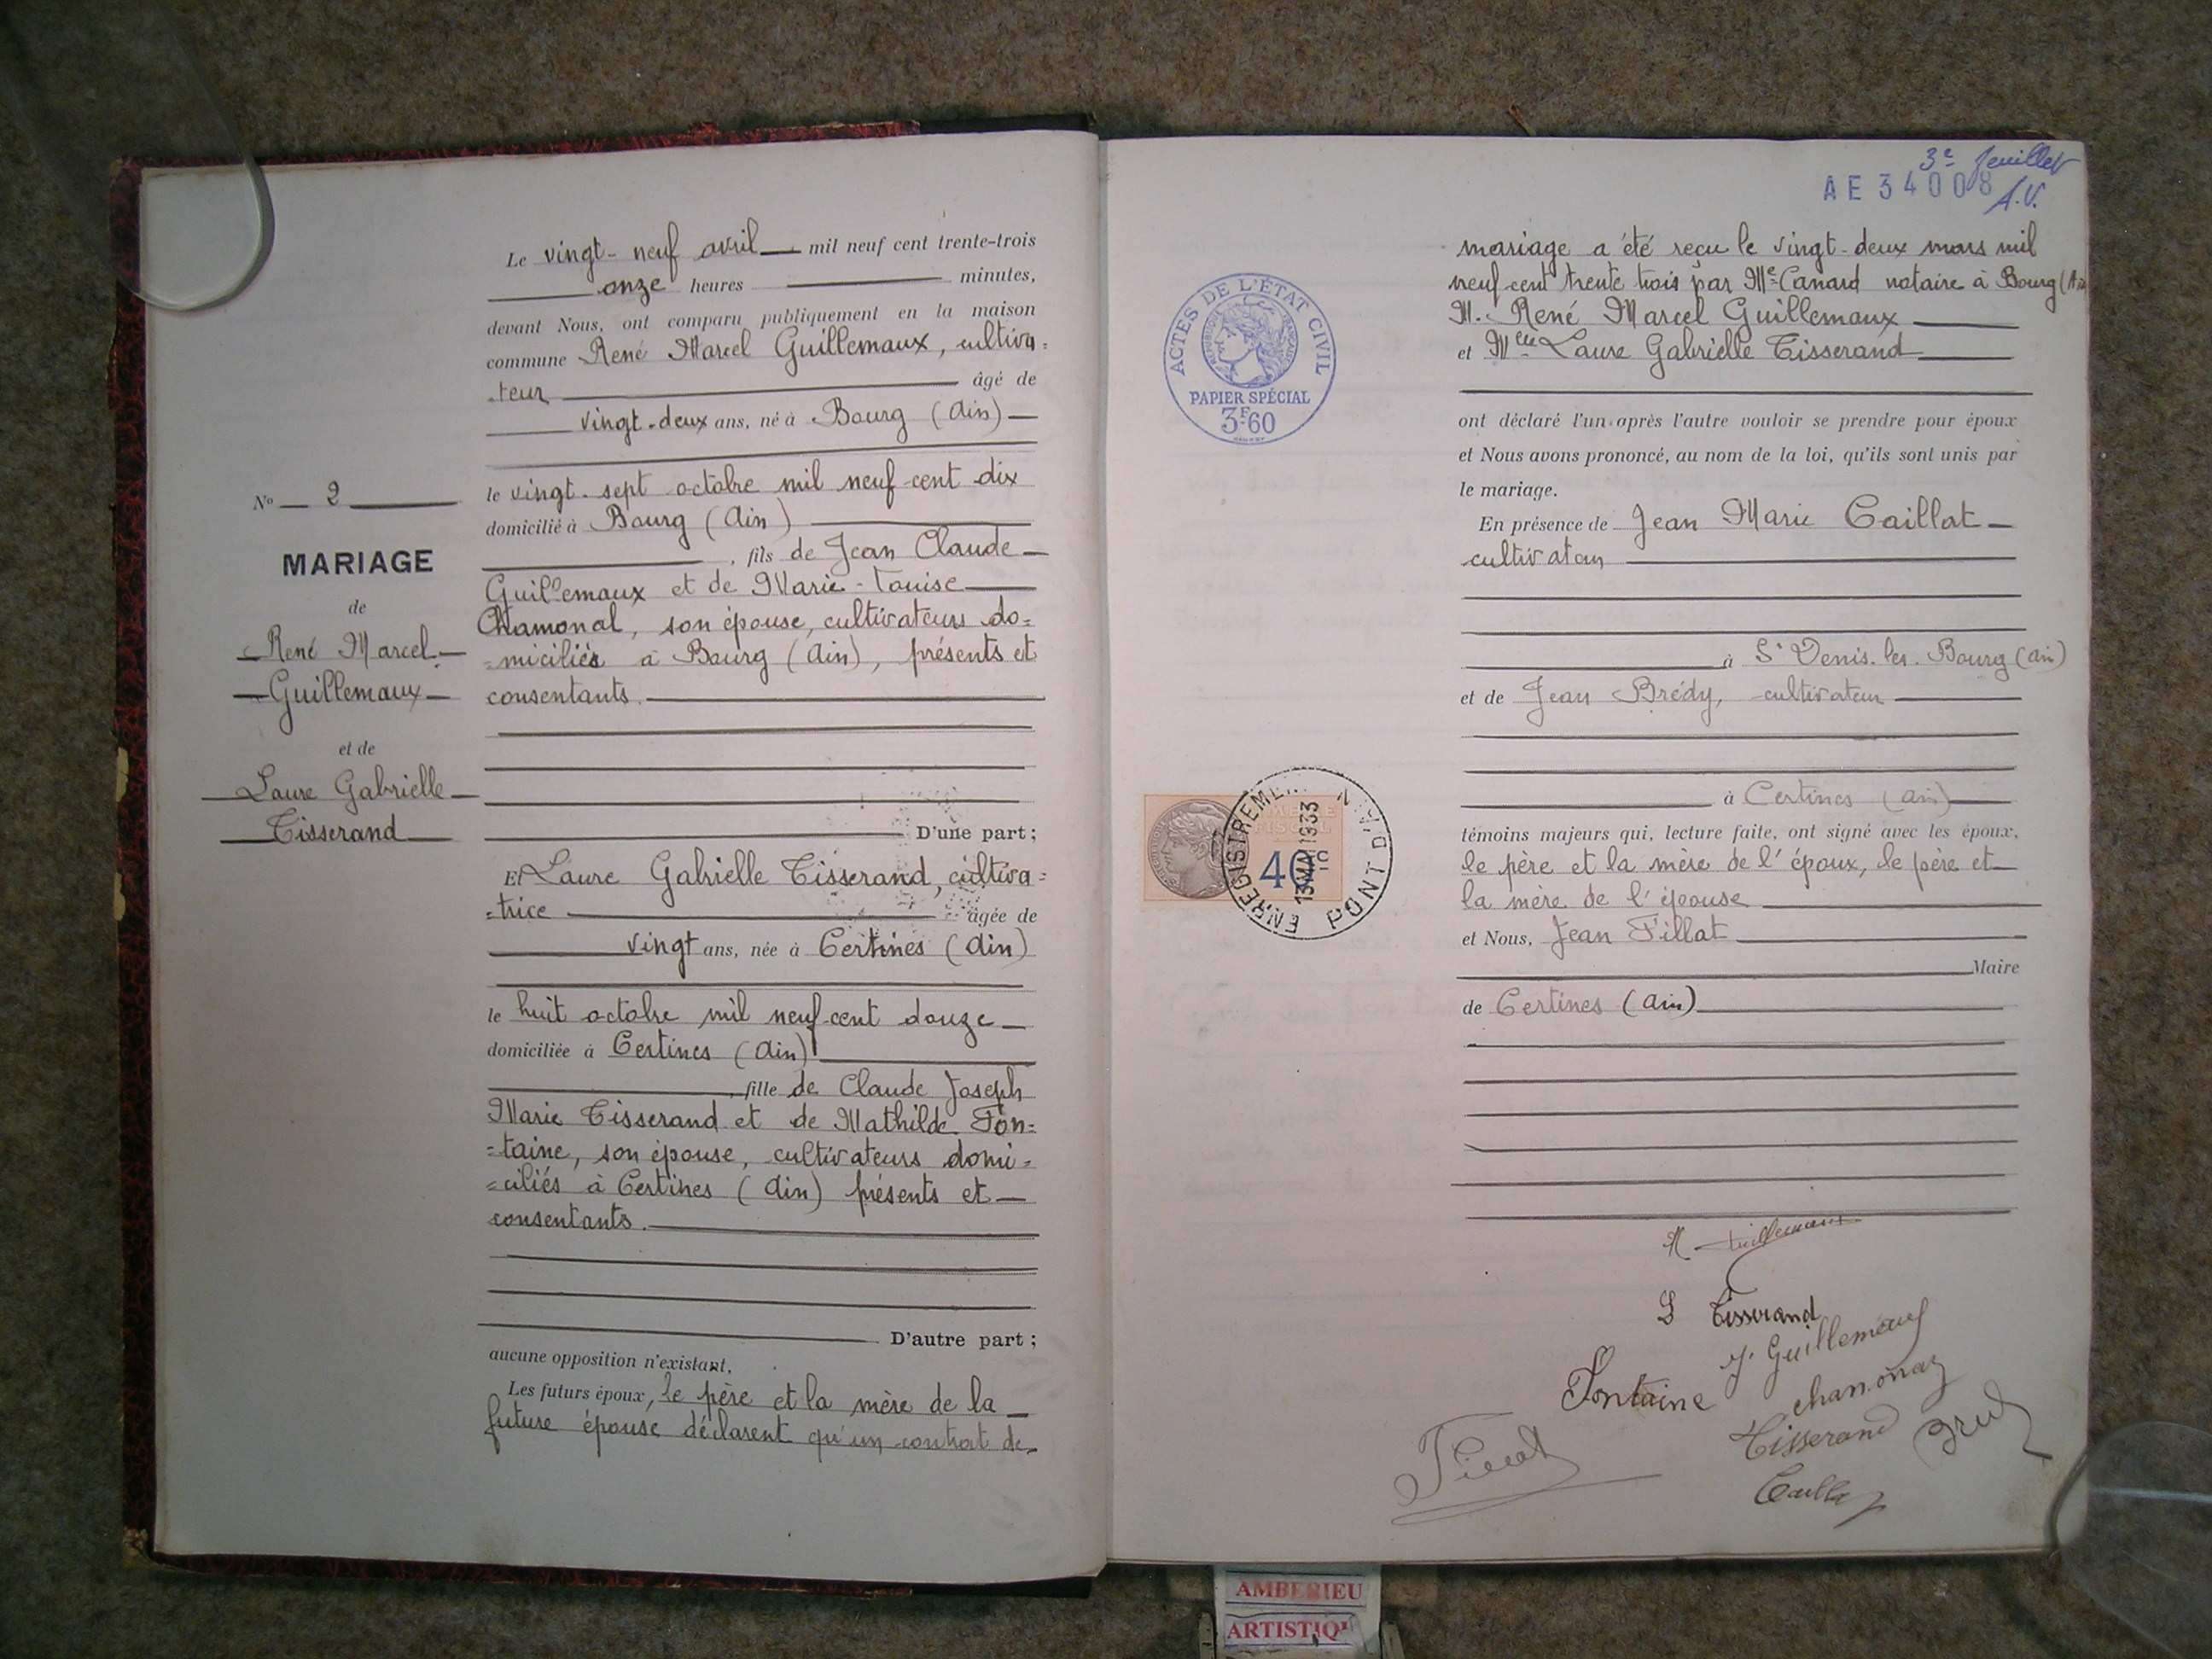 Le vingt-neuf avril mil neuf cent trente-trois
onze heures minutes,
devant Nous, ont comparu publiquement en la maison
commune René Marcel Guillemaux, cultiva=
=teur âgé de
vingt-deux ans, né à Bourg (Ain)
le vingt-sept octobre mil neuf cent dix
domicilié à Bourg (Ain)
, fils de Jean Claude
Guillemaux et de Marie-Louise
Chamonal, son épouse, cultivateurs do=
=miciliés à Bourg (Ain), présents et
consentants.
D'une part;
Et Laure Gabrielle Tisserand, cultiva=
=trice âgée de
vingt ans, née à Certines (Ain)
le huit octobre mil neuf cent douze
domiciliée à Certines (Ain)
, fille de Claude Joseph
Marie Tisserand et de Mathilde Fon=
=taine, son épouse, cultivateurs domi=
=ciliés à Certines (Ain) présents et
consentants.
D'autre part;
aucune opposition n'existant.
Les futurs époux, le père et la mère de la
future épouse déclarent qu'un contrat de
No 2
MARIAGE
de
René Marcel
Guillemaux
et de
Laure Gabrielle
Tisserand
3e feuillet
AE 34008
A.V.
mariage a été reçu le vingt-deux mars mil
neuf cent trente trois par Me Canard notaire à Bourg (Ain
M. René Marcel Guillemaux
et Melle Laure Gabrielle Tisserand
ont déclaré l'un après l'autre vouloir se prendre pour époux
et Nous avons prononcé, au nom de la loi, qu'ils sont unis par
le mariage.
En présence de Jean Marie Caillat
cultivateur
à St Denis-les-Bourg (Ain)
et de Jean Brédy, cultivateur
à Certines (Ain)
témoins majeurs qui, lecture faite, ont signé avec les époux,
le père et la mère de l'époux, le père et
la mère de l'épouse
et Nous, Jean Fillat
Maire
de Certines (Ain)
ACTES DE L'ÉTAT CIVIL
RÉPUBLIQUE FRANÇAISE
PAPIER SPÉCIAL
3F60
ENREGISTREMENT
PONT D'AIN
1933
R Guillemaux
L Tisserand
J. Guillemaux
Fontaine
chamonal
Tisserand
AMBERIEU
ARTISTIQU